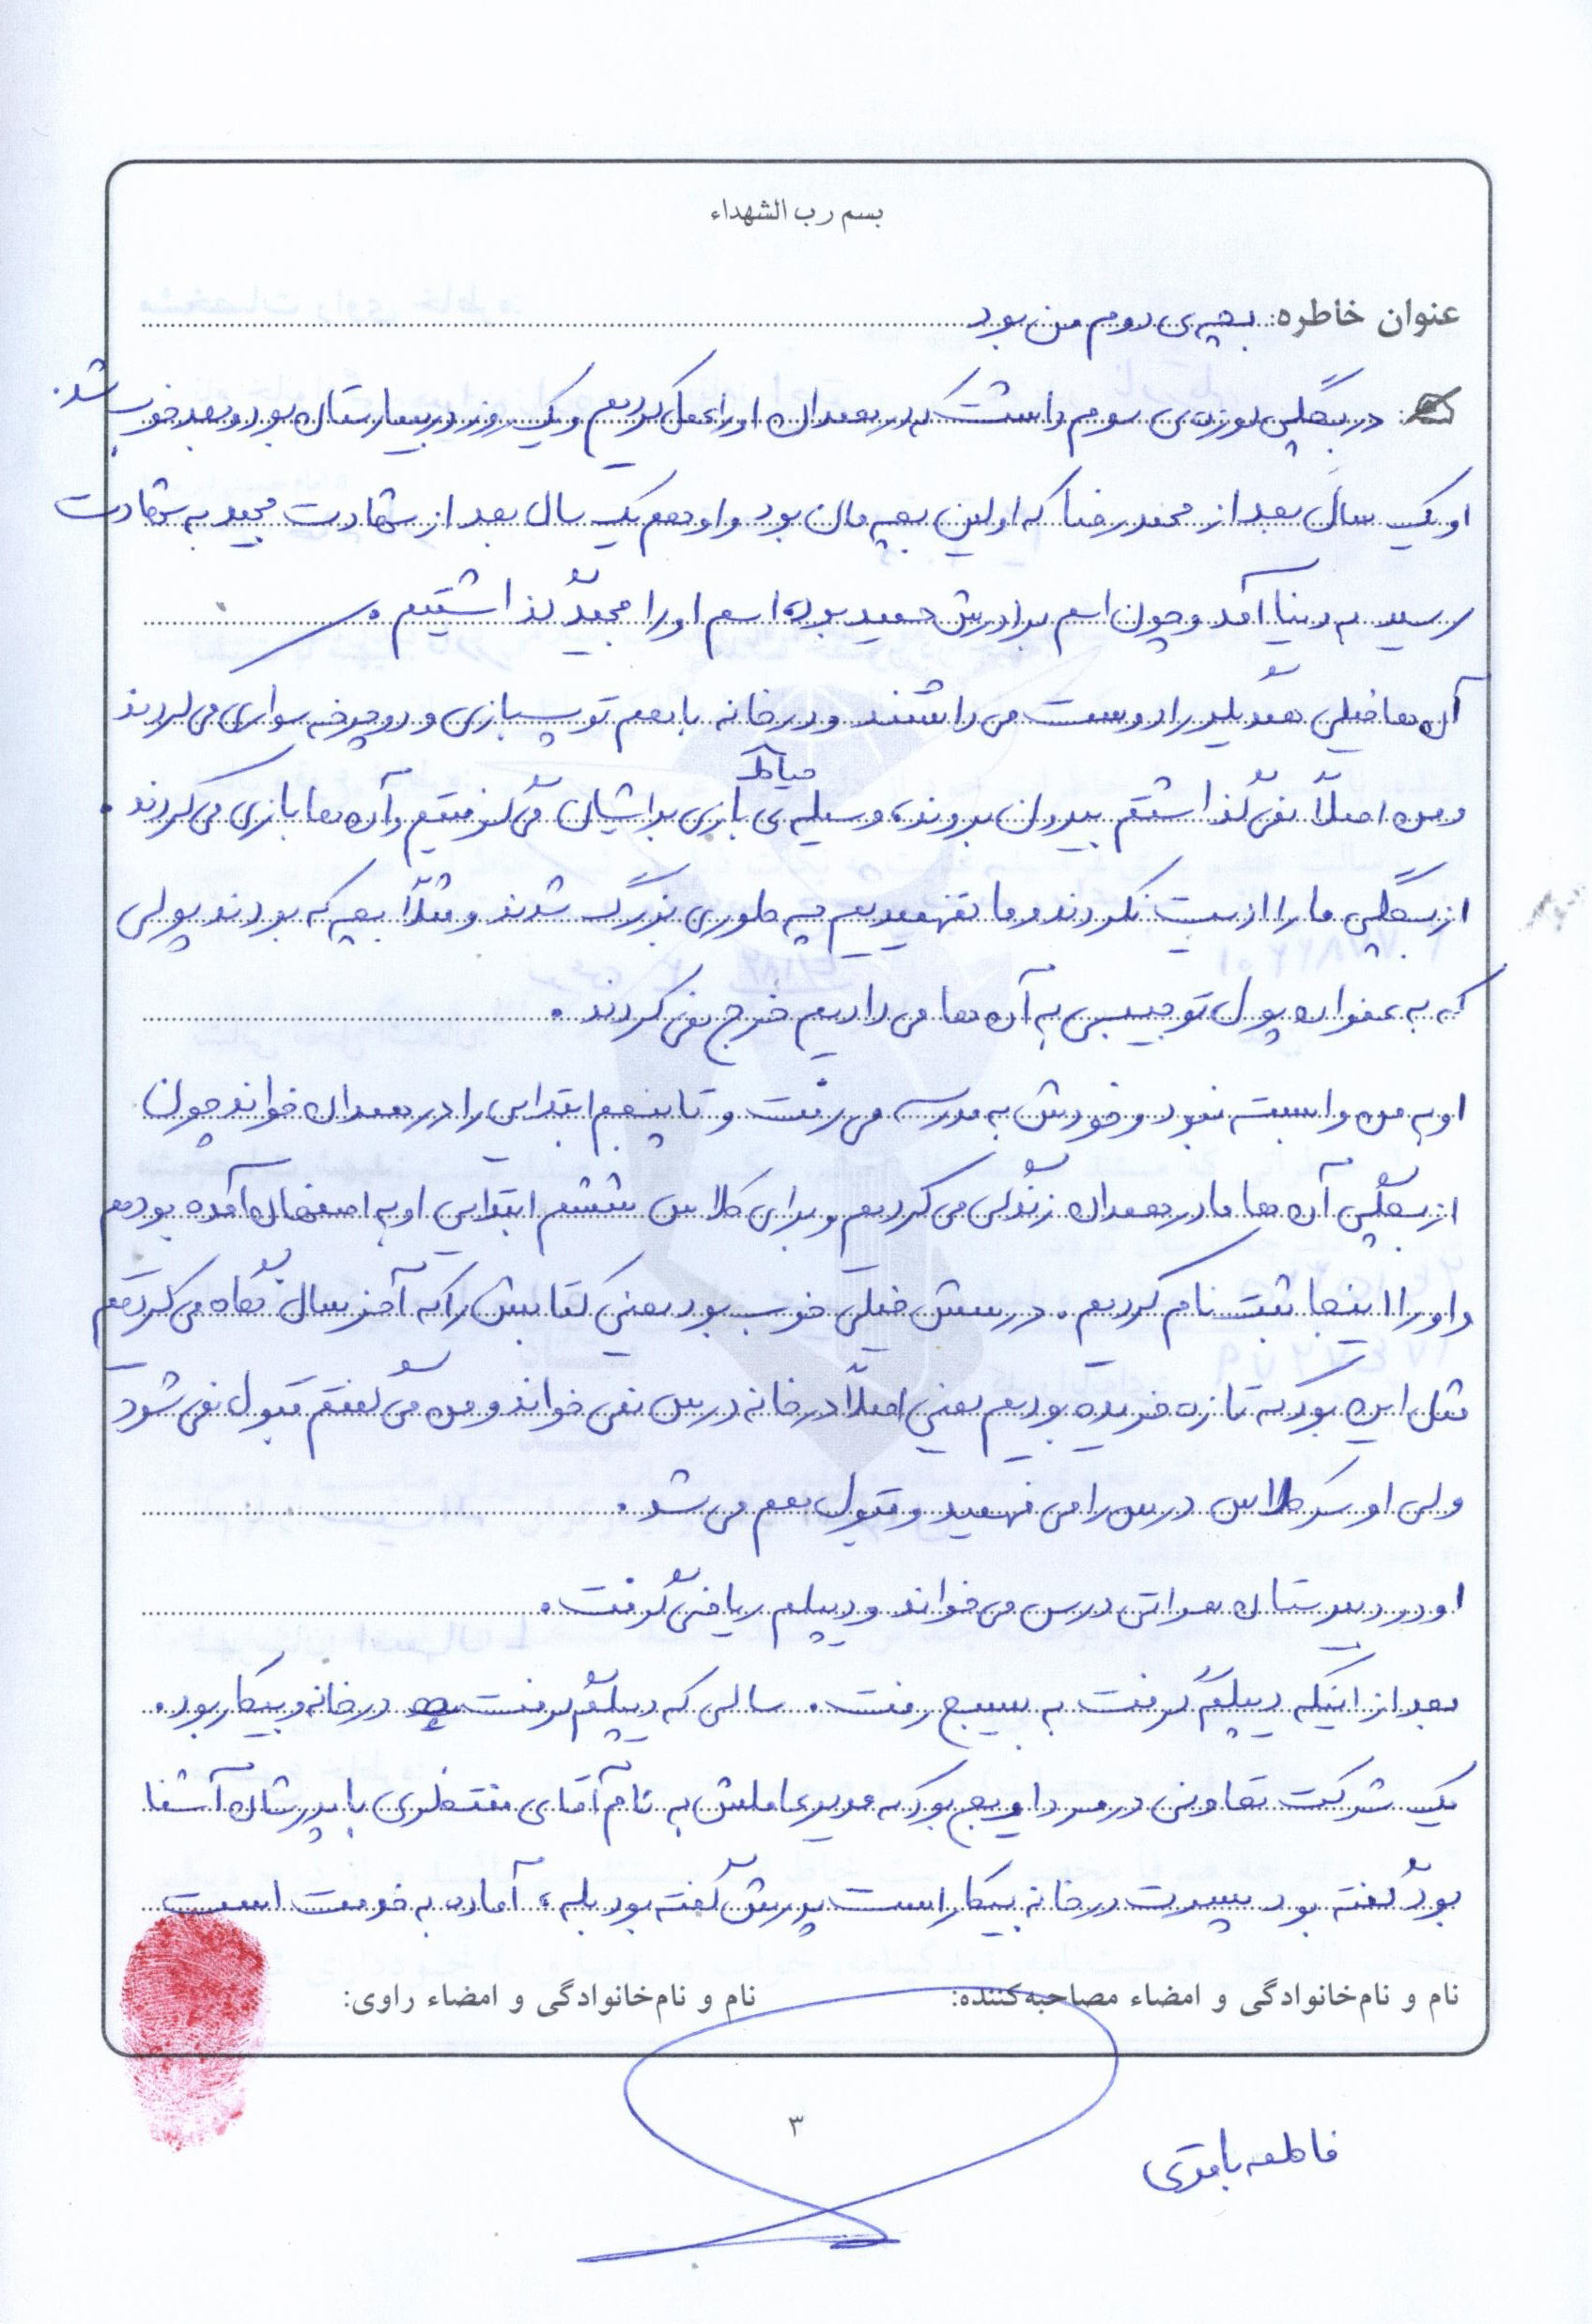 بسم رب الشهداء
عنوان خاطره: بچه‌ی دوم من بود
در بچگی لوزه‌ی سوم داشت که در همدان او را عمل کردیم و یک روز در بیمارستان بود و بعد خوب شد.
او یک سال بعد از محمدرضا که اولین بچه‌مان بود و او هم یک سال بعد از شهادت مجید به شهادت
رسید به دنیا آمد و چون اسم برادرش حمید بود، اسم او را مجید گذاشتیم.
آن‌ها خیلی همدیگر را دوست می‌داشتند و در خانه با هم توپ‌بازی و دوچرخه سواری می‌کردند
حیاط
و من اصلاً نمی‌گذاشتم بیرون بروند، وسیله‌ی بازی براشیان می‌گرفتیم و آن‌ها بازی می‌کردند.
از بچگی ما را اذیت نکردند و ما نفهمیدیم چه طوری بزرگ شدند و مثلاً بچه که بودند پولی
که به عنوان پول توجیبی به آن‌ها می‌دادیم خرج نمی‌کردند.
او به من وابسته نبود و خودش به مدرسه می‌رفت و تا پنجم ابتدایی را در همدان خواند چون
از بچگی آن‌ها ما در همدان زندگی می‌کردیم و برای کلاس ششم ابتدایی او به اصفهان آمده بودیم
و او را اینجا ثبت نام کردیم. درسش خیلی خوب بود یعنی کتابش را که آخر سال نگاه می‌کردیم
مثل این بود که تازه خریده بودیم یعنی اصلاً در خانه درس نمی‌خواند و من می‌گفتم قبول نمی‌شود
ولی او سر کلاس درس را می‌فهمید و قبول هم می‌شد.
او در دبیرستان هراتی درس می‌خواند و دیپلم ریاضی گرفت.
بعد از اینکه دیپلم گرفت به بسیج رفت. سالی که دیپلم گرفت در خانه و بیکار بود.
یک شرکت تعاونی در مرداویج بود که مدیرعاملش به نام آقای منتظری با پدرشان آشنا
بود گفته بود پسرت در خانه بیکار است پدرش گفته بود بله، آماده به خدمت است
نام و نام‌خانوادگی و امضاء مصاحبه‌کننده: نام و نام‌خانوادگی و امضاء راوی:
۳
فاطمه باقری